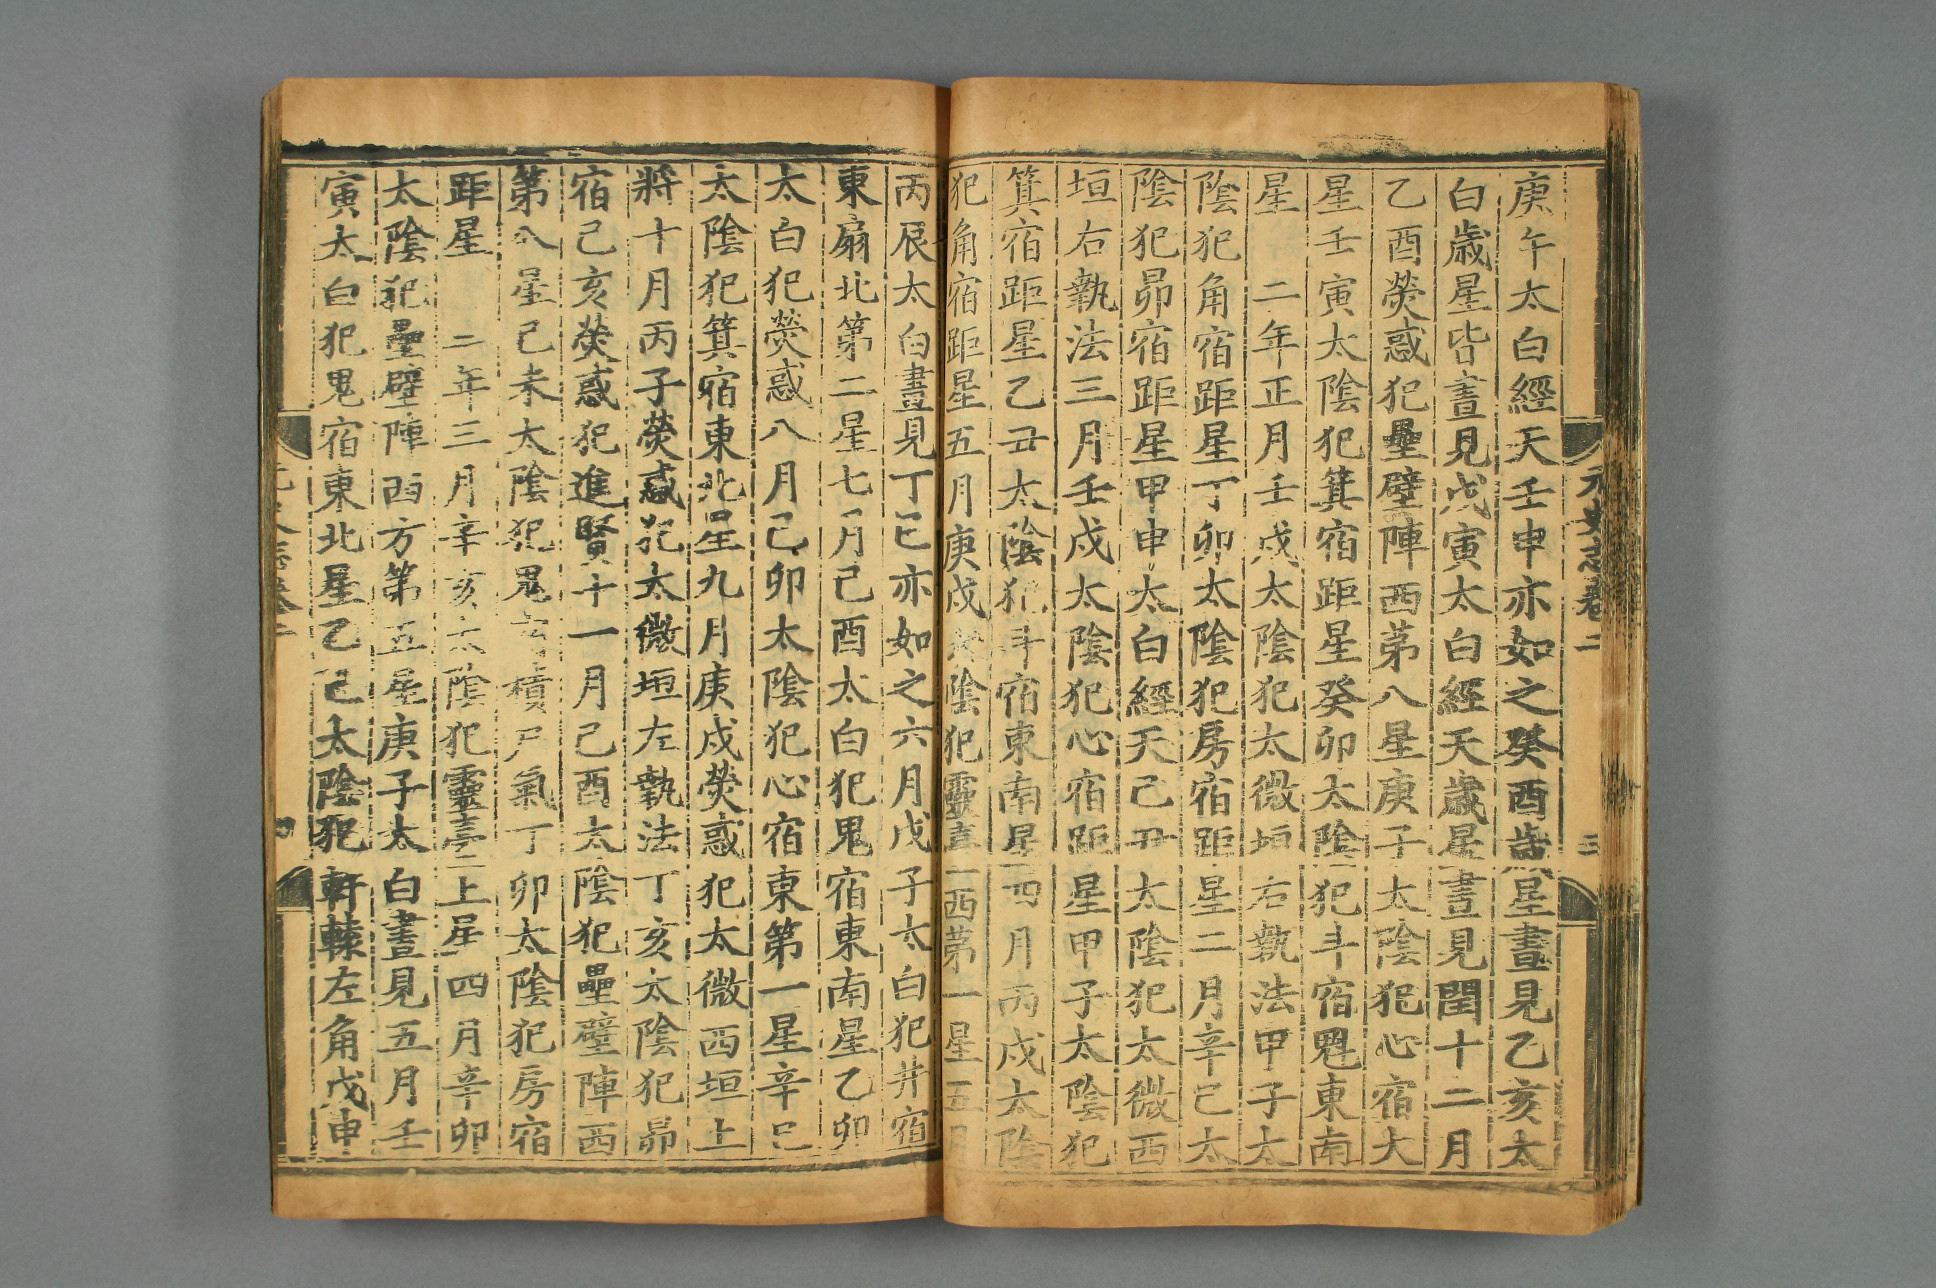 元史志卷二
三
庚午太白經天壬申亦如之癸酉歲星晝見乙亥太
白歲星皆晝見戊寅太白經天歲星晝見閏十二月
乙酉熒惑犯壘壁陣西第八星庚子太陰犯心宿大
星壬寅太陰犯箕宿距星癸卯太陰犯斗宿魁東南
星 二年正月壬戌太陰犯太微垣右執法甲子太
陰犯角宿距星丁卯太陰犯房宿距星二月辛巳太
陰犯昴宿距星甲申太白經天己丑太陰犯太微西
垣右執法三月壬戌太陰犯心宿距星甲子太陰犯
箕宿距星乙丑太陰犯斗宿東南星四月丙戌太陰
犯角宿距星五月庚戌太陰犯靈臺西第一星五月
丙辰太白晝見丁巳亦如之六月戊子太白犯井宿
東扇北第二星七月己酉太白犯鬼宿東南星乙卯
太白犯熒惑八月己卯太陰犯心宿東第一星辛巳
太陰犯箕宿東北星九月庚戌熒惑犯太微西垣上
將十月丙子熒惑犯太微垣左執法丁亥太陰犯昴
宿己亥熒惑犯進賢十一月己酉太陰犯壘壁陣西
第八星己未太陰犯鬼宿積尸氣丁卯太陰犯房宿
距星 三年三月辛亥太陰犯靈臺上星四月辛卯
太陰犯壘壁陣西方第五星庚子太白晝見五月壬
寅太白犯鬼宿東北星乙巳太陰犯軒轅左角戊申
四